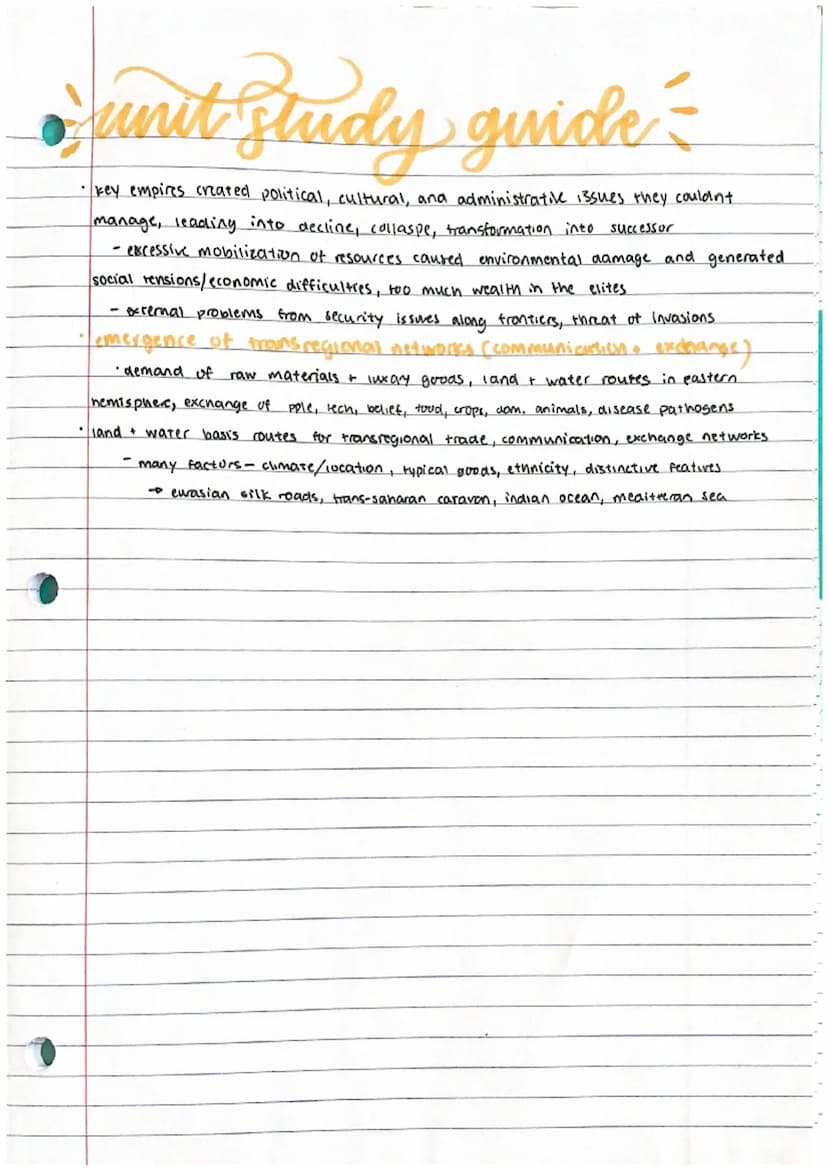 unit study guide
· key empires created political, cultural, and administrative issues they couldnt
manage, leading into decline, collaspe, transformation into successor
- excessive mobilization of resources caused environmental damage and generated
social tensions/economic difficulties, too much wealth in the elites
- external problems from security issues along frontiers, threat of invasions
· emergence of transregional networks (communication + exchange)
· demand of raw materials + luxary goods, land + water routes in eastern
hemisphere, exchange of pple, tech, belief, food, crops, dom. animals, disease pathogens
· land + water basis routes for transregional trade, communication, exchange networks
- many factors - climate/location, typical goods, ethnicity, distinctive features
→ eurasian silk roads, trans-saharan caravan, indian ocean, mediteran sea